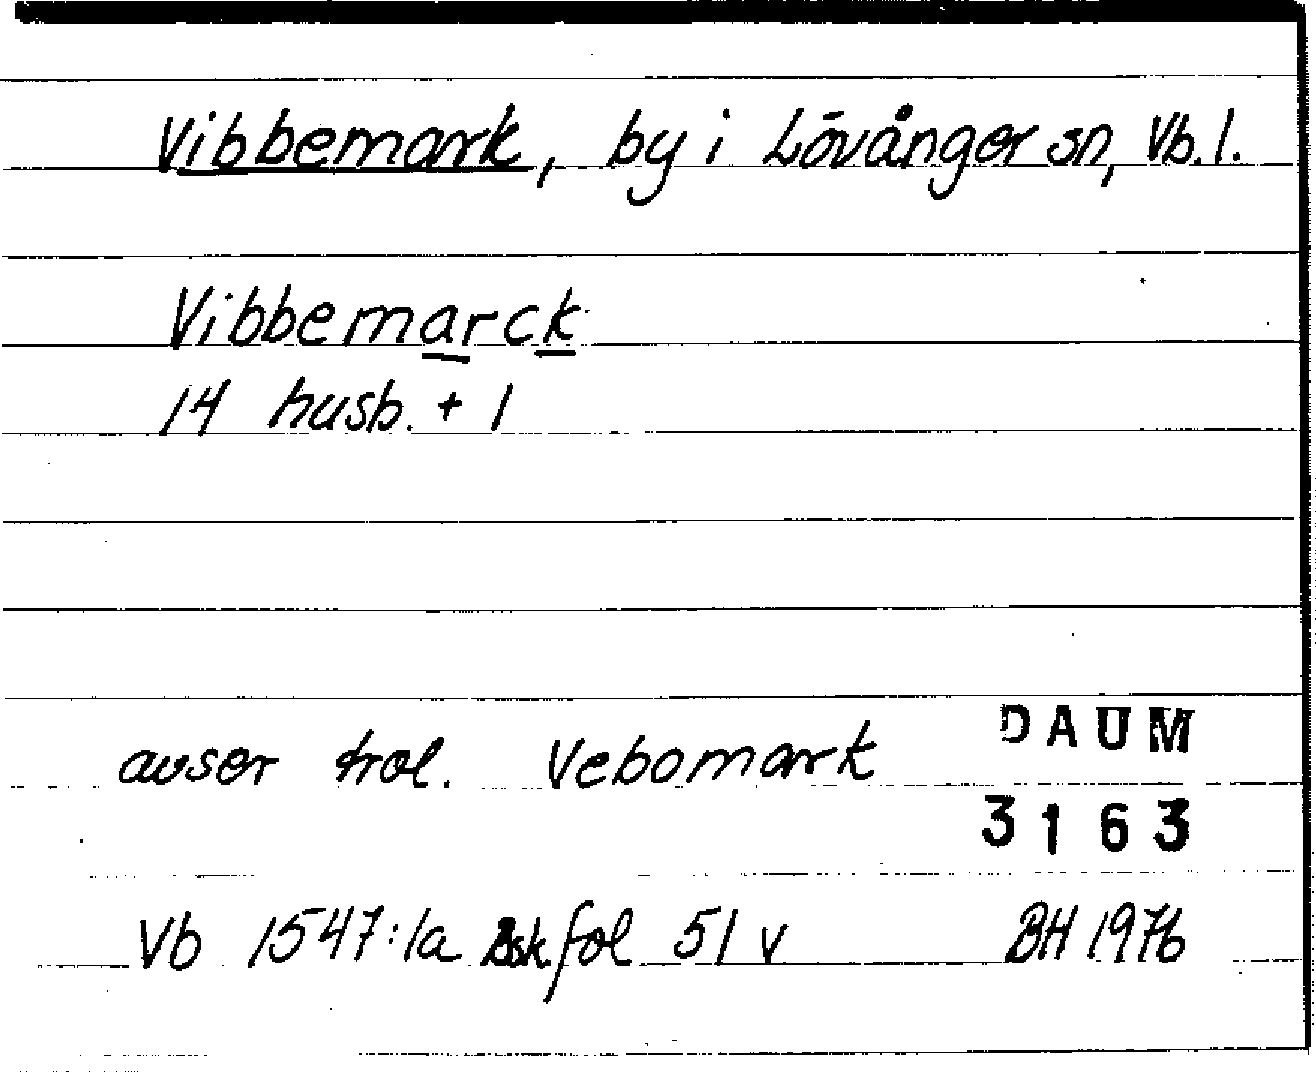 Vibbemark, by i Lövånger sn, Vb. l.
Vibbemarck
14 husb. + 1
avser trol. Vebomark
DAUM
3163
Vb 1547:1a Bsk fol 51 v
BH 1976